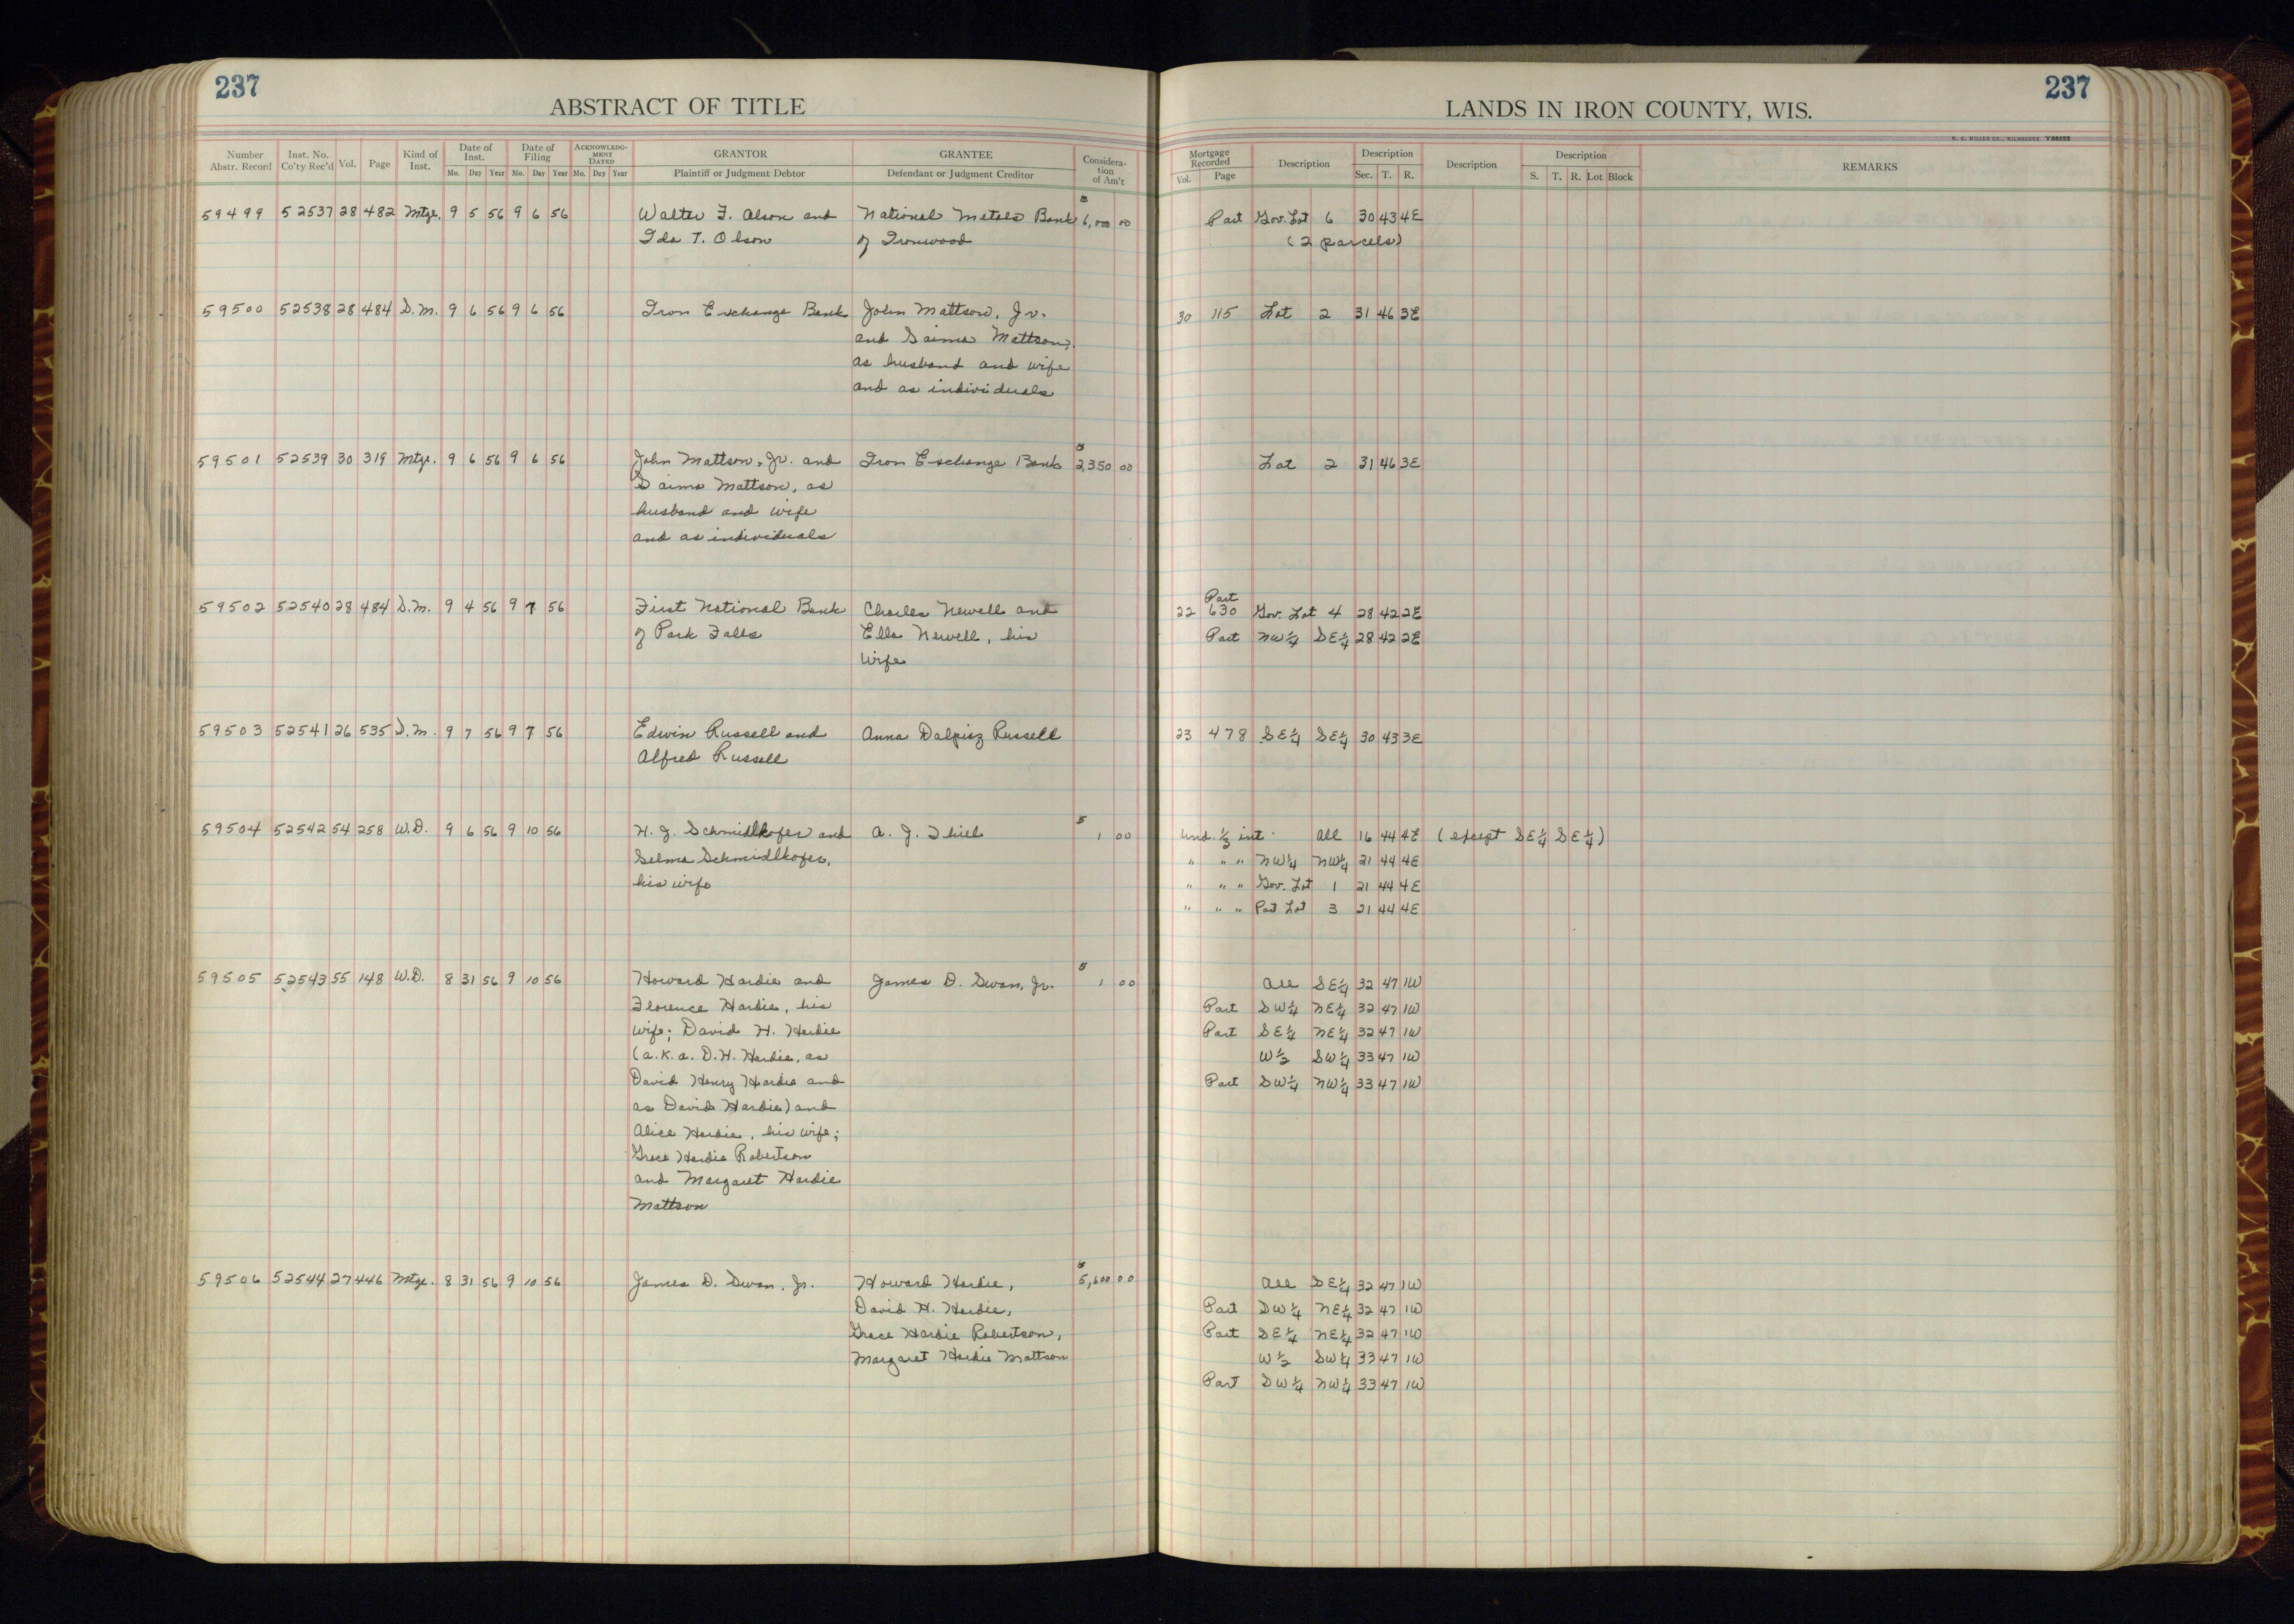 237
ABSTRACT OF TITLE
Number Abstr. Record
Inst. No. Co'ty Rec'd
Vol.
Page
Kind of Inst.
Date of Inst.
Mo. Day Year
Date of Filing
Mo. Day Year
ACKNOWLEDGMENT DATED
Mo. Day Year
GRANTOR
Plaintiff or Judgment Debtor
GRANTEE
Defendant or Judgment Creditor
Consideration of Am't
59499 52537 28 482 Mtge. 9 5 56 9 6 56 Walter F. Olson and National Metals Bank $6,000 00
Ida T. Olson of Ironwood
59500 52538 28 484 S.M. 9 6 56 9 6 56 Iron Exchange Bank John Mattson, Jr.
and Saima Mattson,
as husband and wife
and as individuals
59501 52539 30 319 Mtge. 9 6 56 9 6 56 John Mattson, Jr. and Iron Exchange Bank $2,350 00
Saima Mattson, as
husband and wife
and as individuals
59502 52540 28 484 S.M. 9 4 56 9 7 56 First National Bank Charles Newell and
of Park Falls Ella Newell, his
wife
59503 52541 26 535 S.M. 9 7 56 9 7 56 Edwin Russell and Anna Dalpiaz Russell
Alfred Russell
59504 52542 54 258 W.D. 9 6 56 9 10 56 H. J. Schmidlkofer and A. J. Thiel $1 00
Selma Schmidlkofer,
his wife
59505 52543 55 148 W.D. 8 31 56 9 10 56 Howard Hardie and James D. Swan, Jr. $1 00
Florence Hardie, his
wife; David H. Hardie
(a.k.a. D.H. Hardie, as
David Henry Hardie and
as David Hardie) and
Alice Hardie, his wife;
Grace Hardie Robertson
and Margaret Hardie
Mattson
59506 52544 27 446 Mtge. 8 31 56 9 10 56 James D. Swan, Jr. Howard Hardie, $5,600 00
David H. Hardie,
Grace Hardie Robertson,
Margaret Hardie Mattson
237
LANDS IN IRON COUNTY, WIS.
H. C. MILLER CO., MILWAUKEE Y66555
Mortgage Recorded
Vol. Page
Description
Description
Sec. T. R.
Description
Description
S. T. R. Lot Block
REMARKS
Part Gov. Lot 6 30 43 4E
(2 parcels)
30 115 Lot 2 31 46 3E
Lot 2 31 46 3E
Part
22 630 Gov. Lot 4 28 42 2E
Part NW¼ SE¼ 28 42 2E
23 478 SE¼ SE¼ 30 43 3E
Und. ⅓ int. All 16 44 4E (except SE¼ SE¼)
" " " NW¼ NW¼ 21 44 4E
" " " Gov. Lot 1 21 44 4E
" " " Part Lot 3 21 44 4E
All SE¼ 32 47 1W
Part SW¼ NE¼ 32 47 1W
Part SE¼ NE¼ 32 47 1W
W½ SW¼ 33 47 1W
Part SW¼ NW¼ 33 47 1W
All SE¼ 32 47 1W
Part SW¼ NE¼ 32 47 1W
Part SE¼ NE¼ 32 47 1W
W½ SW¼ 33 47 1W
Part SW¼ NW¼ 33 47 1W